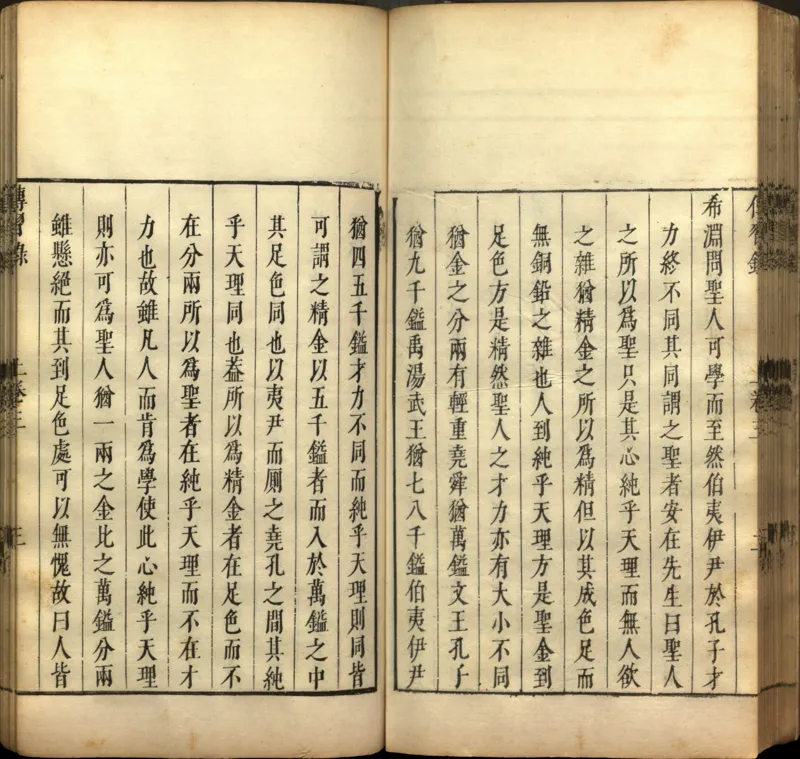 希淵問聖人可學而至然伯夷伊尹於孔子才
力終不同其同謂之聖者安在先生曰聖人
之所以爲聖只是其心純乎天理而無人欲
之雜猶精金之所以爲精但以其成色足而
無銅鉛之雜也人到純乎天理方是聖金到
足色方是精然聖人之才力亦有大小不同
猶金之分兩有輕重堯舜猶萬鎰文王孔子
猶九千鎰禹湯武王猶七八千鎰伯夷伊尹
猶四五千鎰才力不同而純乎天理則同皆
可謂之精金以五千鎰者而入於萬鎰之中
其足色同也以夷尹而厠之堯孔之間其純
乎天理同也葢所以爲精金者在足色而不
在分兩所以爲聖者在純乎天理而不在才
力也故雖凡人而肯爲學使此心純乎天理
則亦可爲聖人猶一兩之金比之萬鎰分兩
雖懸絕而其到足色處可以無愧故曰人皆
傳習錄